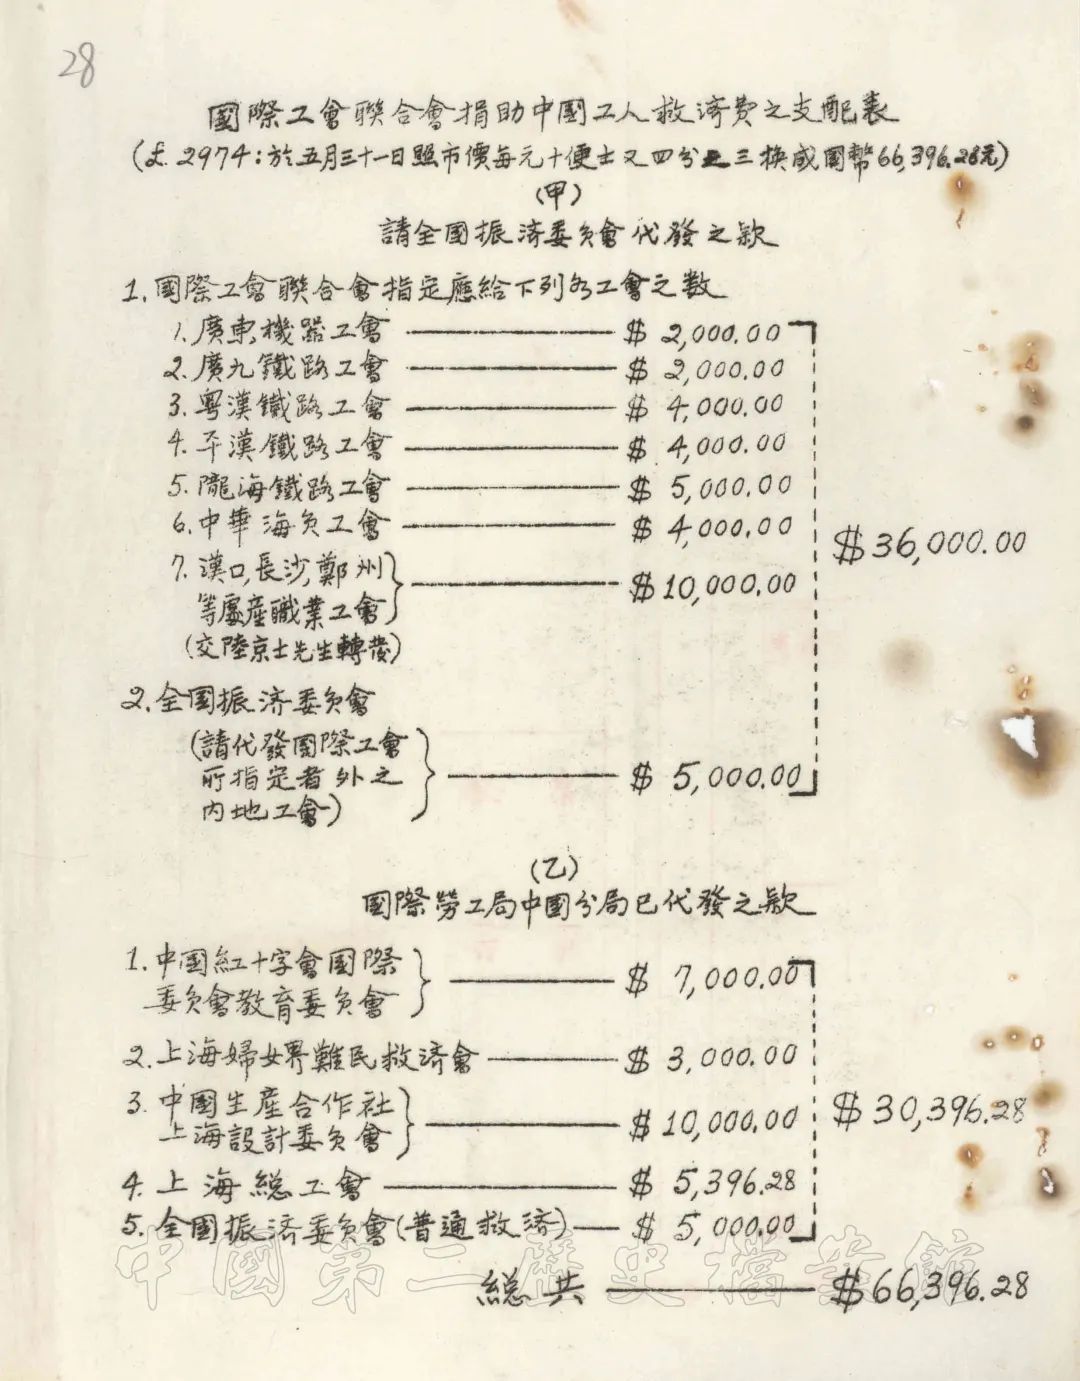 28
國際工會聯合會捐助中國工人救濟費之支配表
(£.2974:於五月三十一日照市價每元十便士又四分之三換成國幣66,396.28元)
(甲)
請全國振济委員會代發之款
1.國際工會聯合會指定應給下列各工會之数
1.廣東機器工會 $ 2,000.00
2.廣九鐵路工會 $ 2,000.00
3.粵漢鐵路工會 $ 4,000.00
4.平漢鐵路工會 $ 4,000.00
5.隴海鐵路工會 $ 5,000.00
6.中華海員工會 $ 4,000.00
$36,000.00
7.漢口,長沙,鄭州
等處産職業工會 $10,000.00
(交陸京士先生轉發)
2.全國振济委員會
(請代發國際工會
所指定者外之
内地工會) $ 5,000.00
(乙)
國際勞工局中國分局已代發之款
1.中國紅十字會國際
委員會教育委員會 $ 7,000.00
2.上海婦女界難民救济會 $ 3,000.00
3.中國生産合作社
上海設計委員會 $10,000.00
$30,396.28
4.上海總工會 $ 5,396.28
5.全國振济委員會(普通救济) $ 5,000.00
總共 $66,396.28
中國第二歷史檔案館